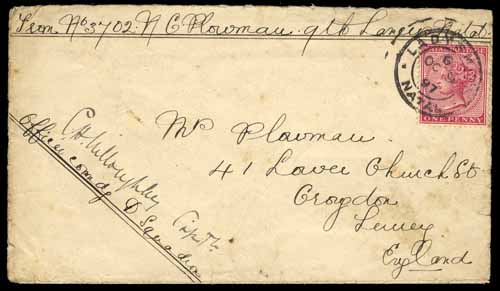 From No 3702. N C Plowman. 9th Lancers. Natal.
LADYSMITH
OC 6
97
NATAL
ONE PENNY
Mr Plowman
41 Lower Church St
Croydon
Surrey
England
C H Willoughby Capt
Officer comdg D Squadron